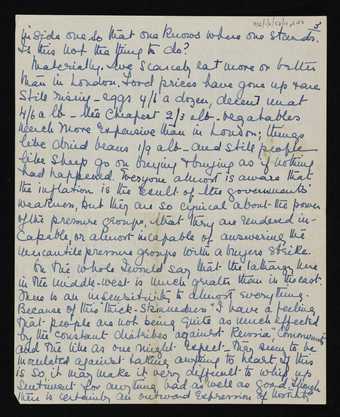 3
inside one so that one knows where one stands.
Is this not the thing to do?
Materially, we scarcely eat more or better
than in London. Food prices have gone up & are
still rising – eggs 4/6 a dozen, decent meat
4/6 a lb – the cheapest 2/3 a lb – vegetables
much more expensive than in London; things
like dried beans 1/9 a lb – and still people
like sheep go on buying & buying as if nothing
had happened. Everyone almost is aware that
the inflation is the result of the governments'
weakness, but they are so cynical about the power
of the pressure groups, that they are rendered in-
capable, or almost incapable of answering the
mercantile pressure groups with a buyers strike.
On the whole I would say that the lethargy here
in the middle-west is much greater than in the east.
There is an insensitivity to almost everything.
Because of this "thick-skinnedness" I have a feeling
that people are not being quite as much affected
by the constant diatribes against Russia, Communism
and the like as one might expect. They seem to be
insulated against taking anything to heart. If this
is so it may make it very difficult to whip up
sentiment for anything bad as well as good, though
there is certainly an outward expression of